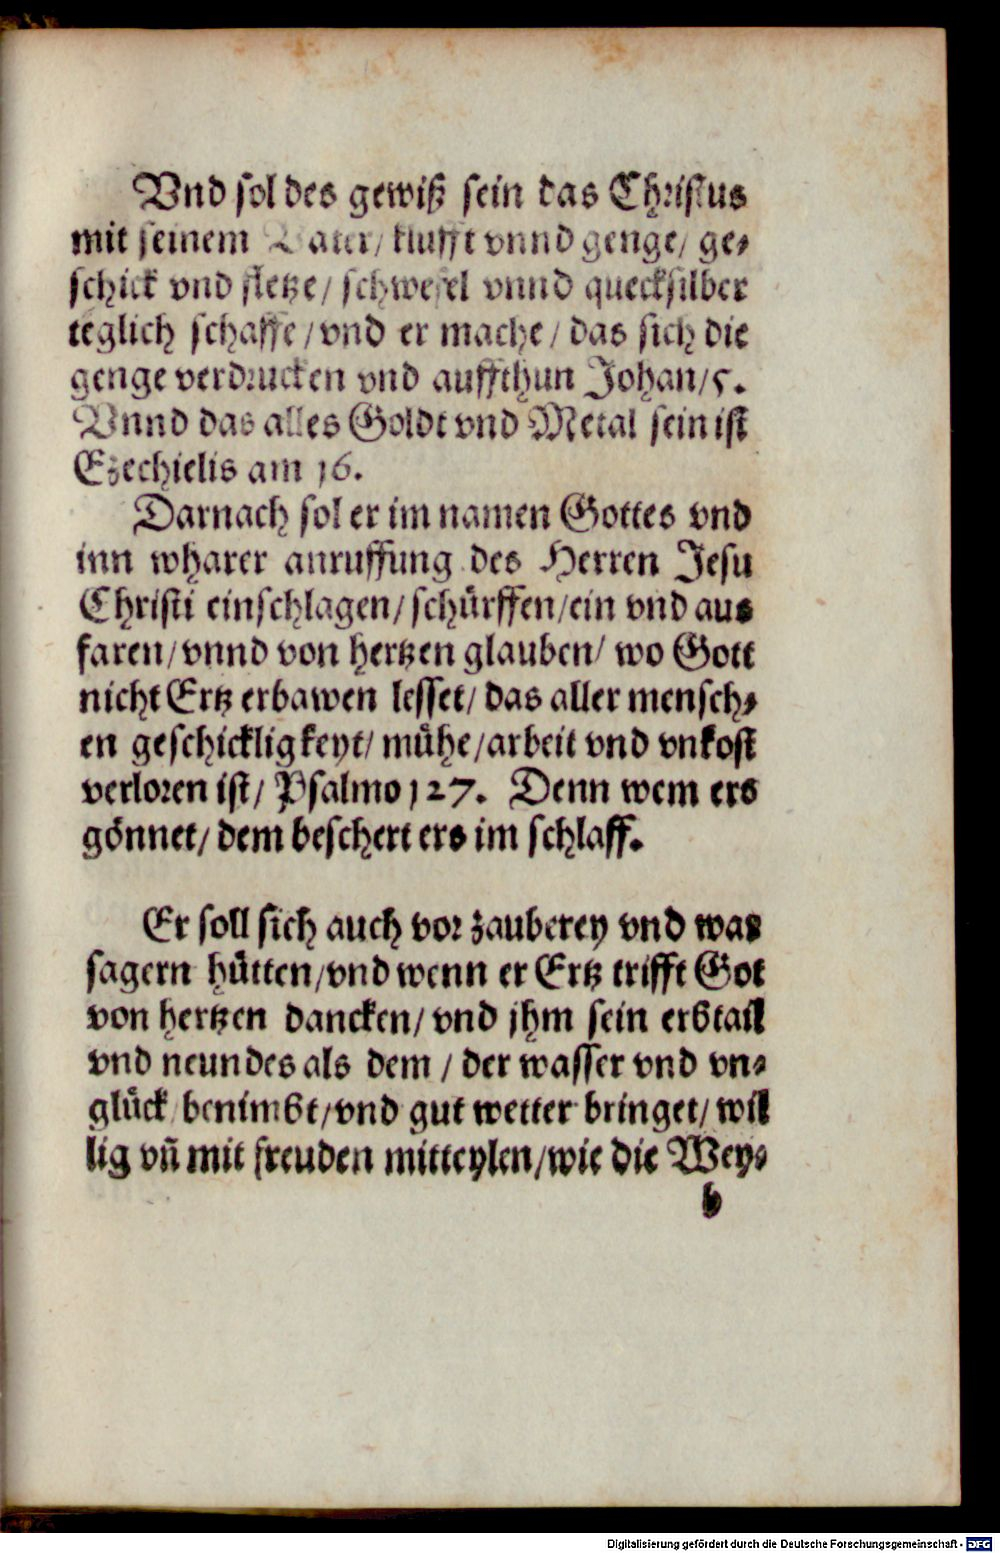 Vnd sol des gewiß sein das Christus
mit seinem Vater/ klufft vnnd genge/ ge-
schick vnd fletze/ schwefel vnnd quecksilber
teglich schaffe/ vnd er mache/ das sich die
genge verdrucken vnd auffthun Johan/5.
Vnnd das alles Goldt vnd Metal sein ist
Ezechielis am 16.
Darnach sol er im namen Gottes vnd
inn wharer anruffung des Herren Jesu
Christi einschlagen/ schürffen/ ein vnd aus
faren/ vnnd von hertzen glauben/ wo Gott
nicht Ertz erbawen lesset/ das aller mensch-
en geschickligkeyt/ mühe/ arbeit vnd vnkost
verloren ist/ Psalmo 127. Denn wem ers
gönnet/ dem beschert ers im schlaff.
Er soll sich auch vor zauberey vnd war
sagern hütten/ vnd wenn er Ertz trifft Got
von hertzen dancken/ vnd jhm sein erbtail
vnd neundes als dem / der wasser vnd vn-
glück benimbt/ vnd gut wetter bringet/ wil
lig vñ mit freuden mitteylen/ wie die Wey-
b
Digitalisierung gefördert durch die Deutsche Forschungsgemeinschaft - DFG